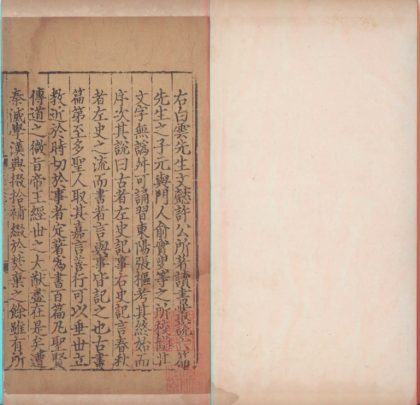 右白雲先生文懿許公所著讀書叢說六篇
先生之子元與門人俞實叟等之所
文字無譌舛可誦習東陽張樞考其終始而
序次其說曰古者左史記事右史記言春秋
者左史之流而書者言與事皆記之也古書
篇第至多聖人取其嘉言善行可以垂世立
教近於時切於事者定著為書百篇凡聖賢
傳道之微旨帝王經世之大猷盡在是矣遭
秦滅學漢興掇拾補綴於焚棄之餘雖有所